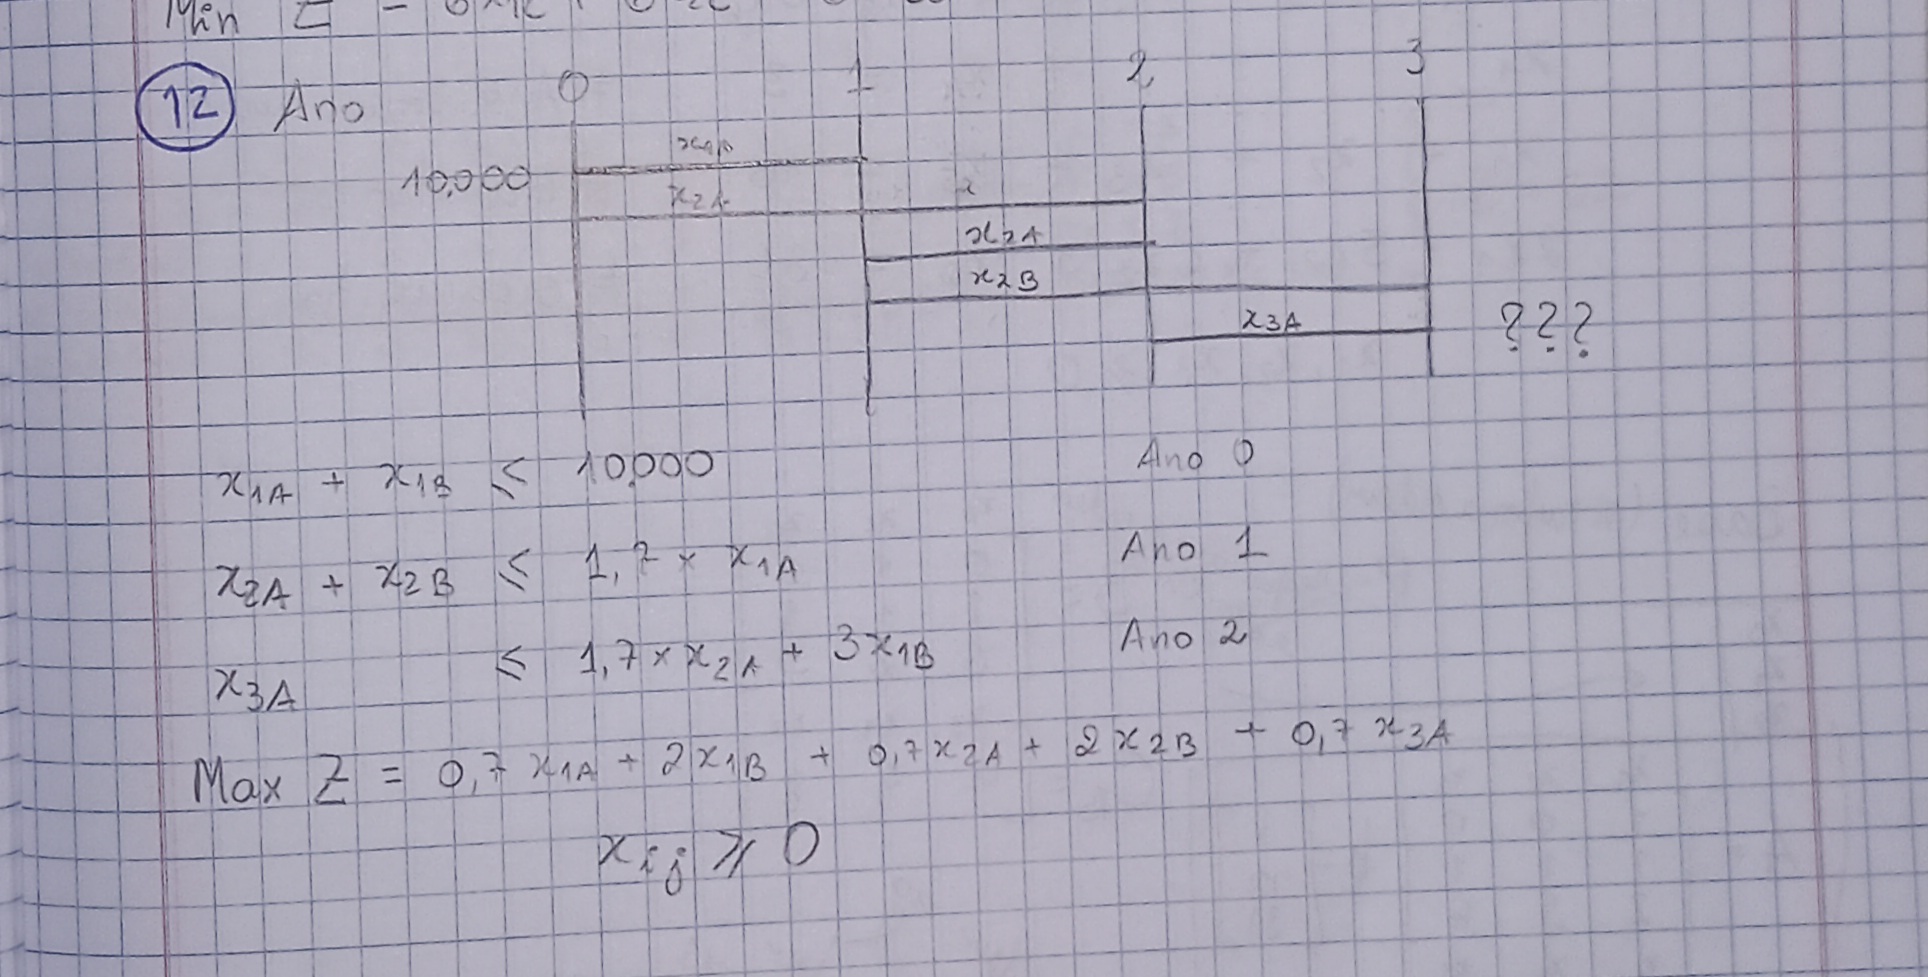 Min Z =
12 Ano 0 1 2 3
10,000
x2A
x2A
x2B
x3A ???
x1A + x1B ≤ 10,000 Ano 0
x2A + x2B ≤ 1,7 × x1A Ano 1
x3A ≤ 1,7 × x2A + 3x1B Ano 2
Max Z = 0,7 x1A + 2x1B + 0,7x2A + 2x2B + 0,7 x3A
xij ≥ 0